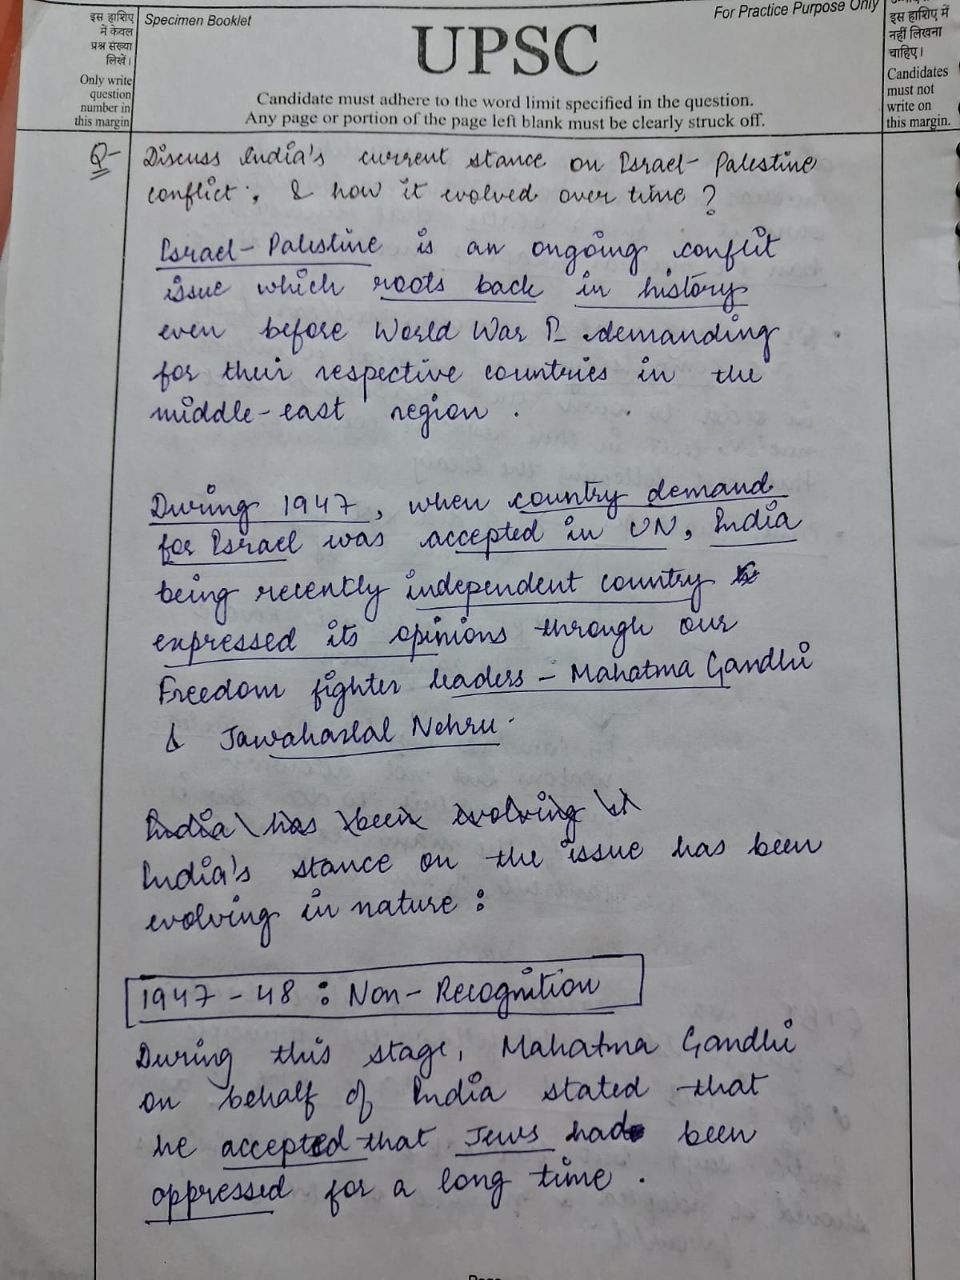 इस हाशिए
में केवल
प्रश्न संख्या
लिखें।
Only write
question
number in
this margin
Specimen Booklet
For Practice Purpose Only
UPSC
Candidate must adhere to the word limit specified in the question.
Any page or portion of the page left blank must be clearly struck off.
इस हाशिए में
नहीं लिखना
चाहिए।
Candidates
must not
write on
this margin.
Q- Discuss India's current stance on Israel-Palestine
conflict; & how it evolved over time?
Israel-Palestine is an ongoing conflit
issue which roots back in history
even before World War II demanding
for their respective countries in the
middle-east region.
During 1947, when country demand
for Israel was accepted in UN, India
being recently independent country
expressed its opinions through our
Freedom fighter leaders - Mahatma Gandhi
& Jawaharlal Nehru.
India has been evolving it
India's stance on the issue has been
evolving in nature:
1947-48: Non-Recognition
During this stage, Mahatma Gandhi
on behalf of India stated that
he accepted that Jews had been
oppressed for a long time.